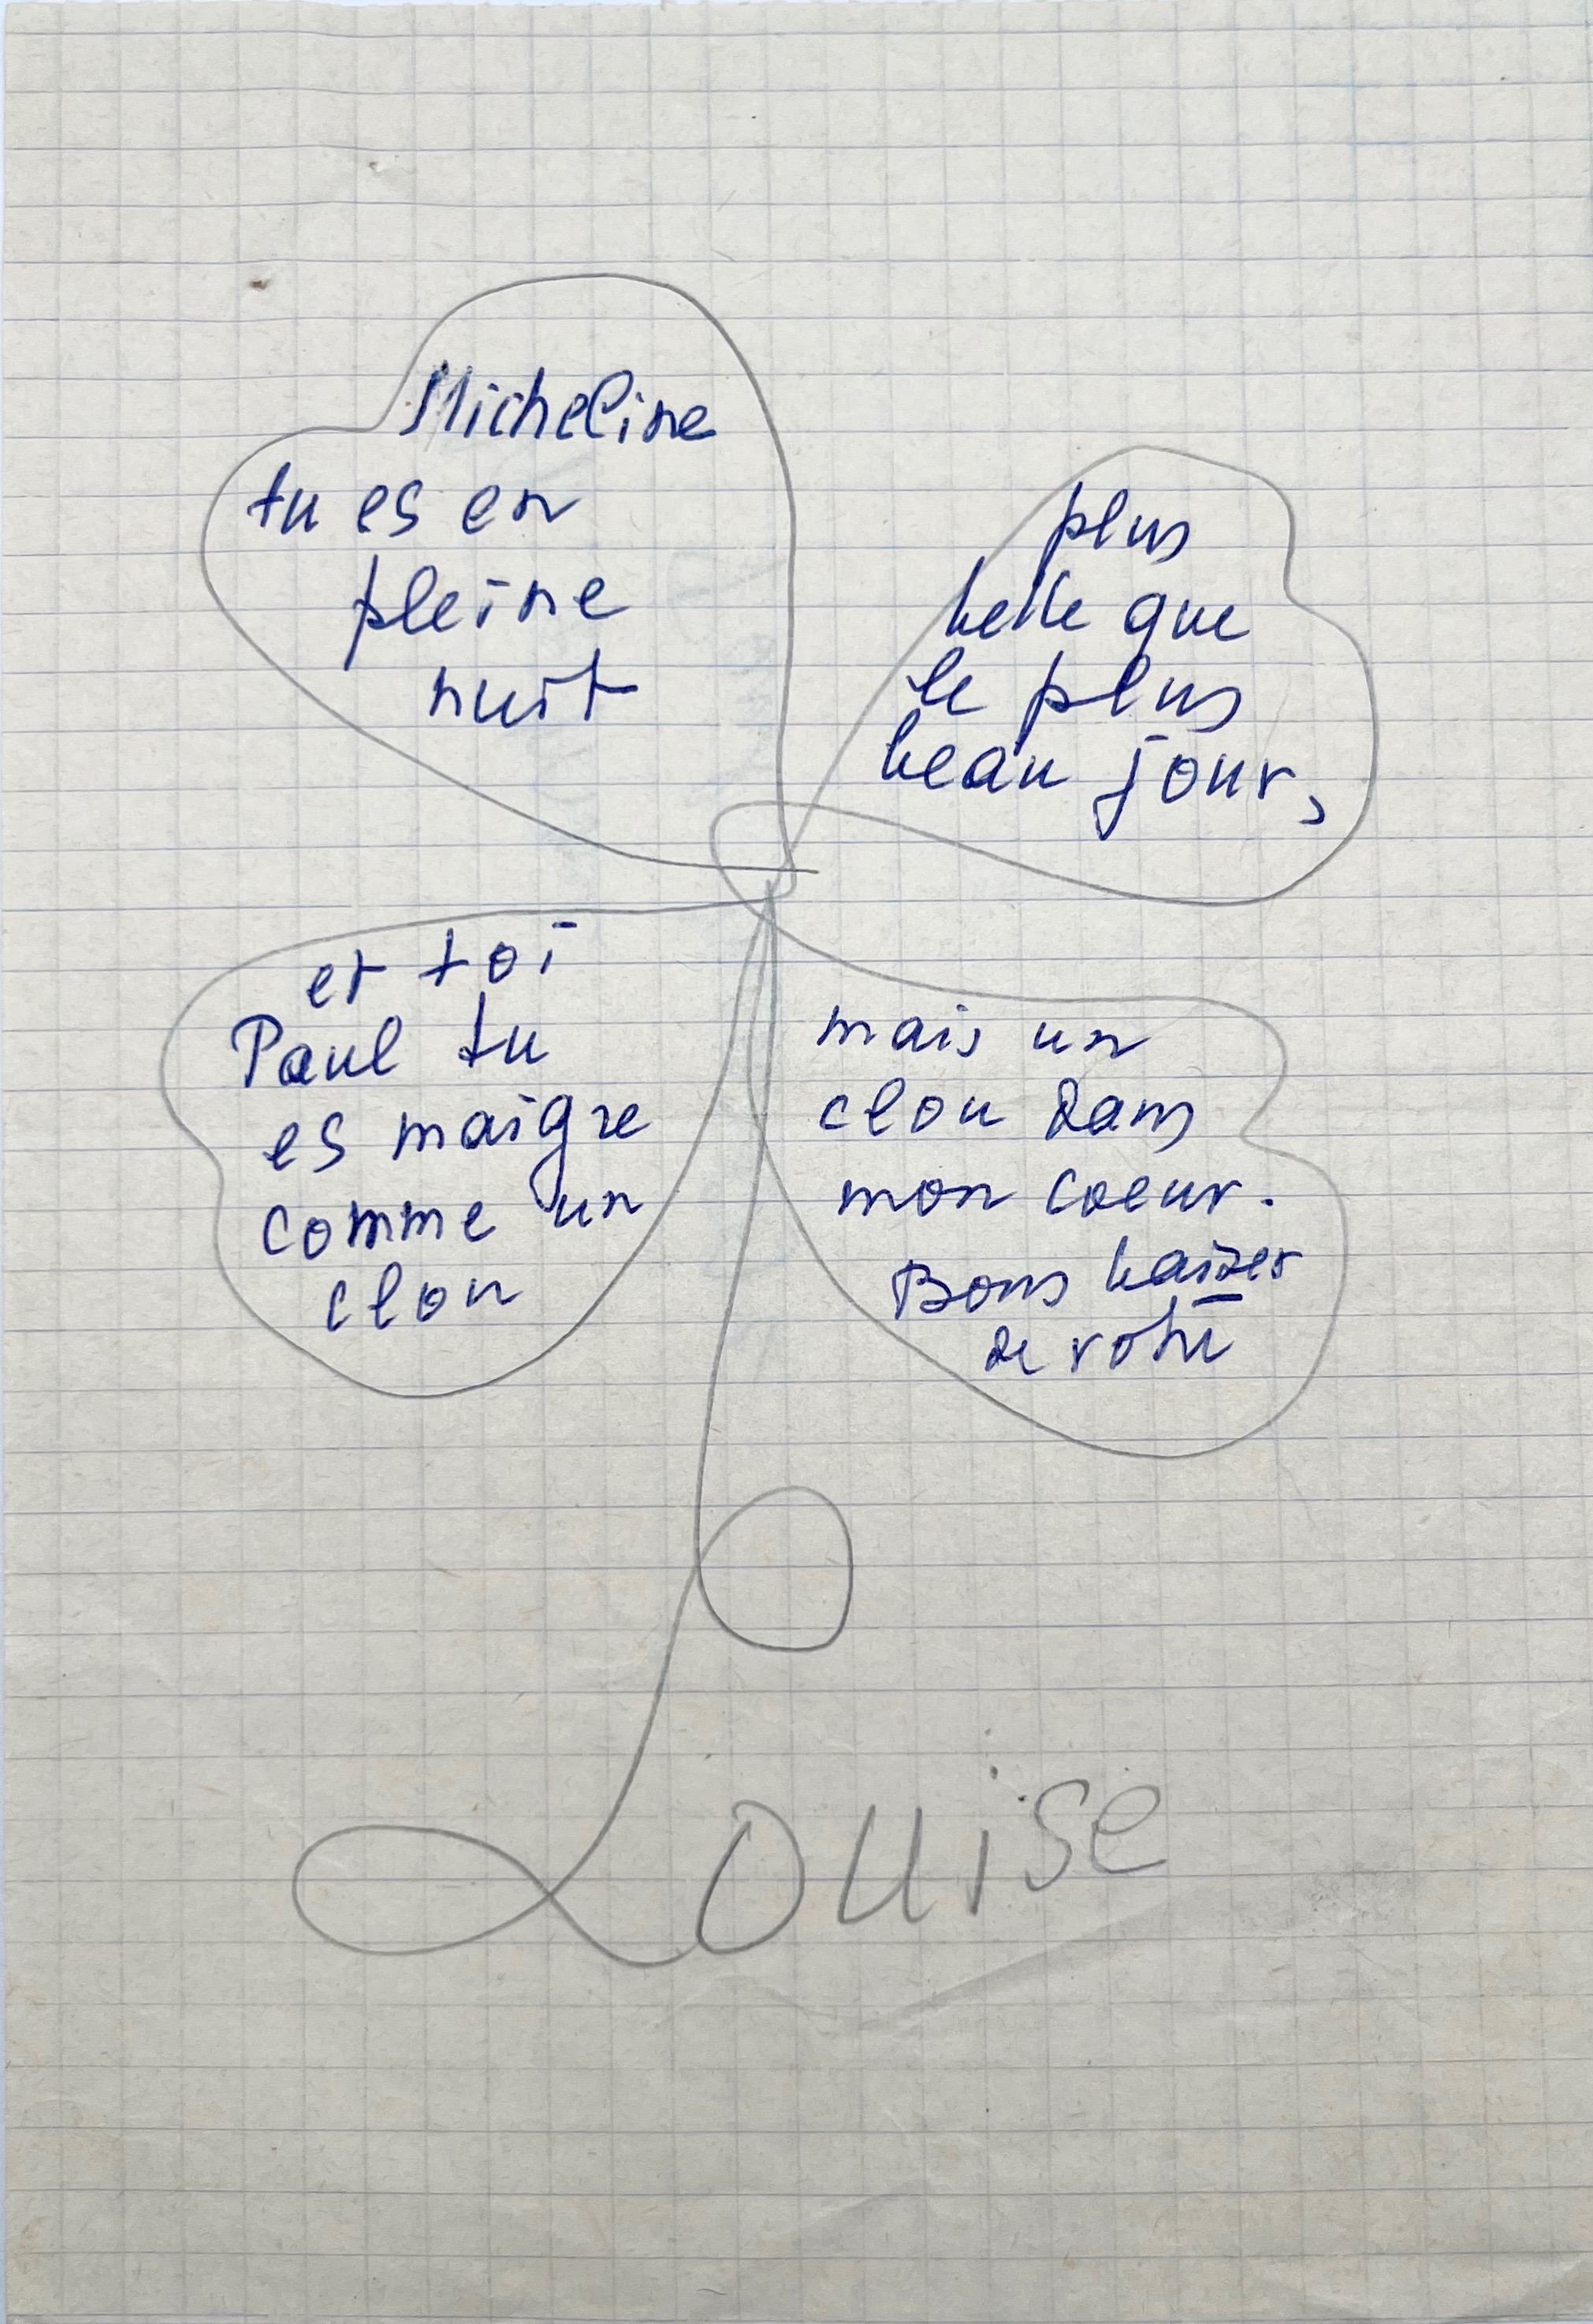 Micheline
tu es en
pleine
nuit
plus
belle que
le plus
beau jour,
et toi
Paul tu
es maigre
comme un
clou
mais un
clou dans
mon coeur.
Bons baiser
de votre
Louise